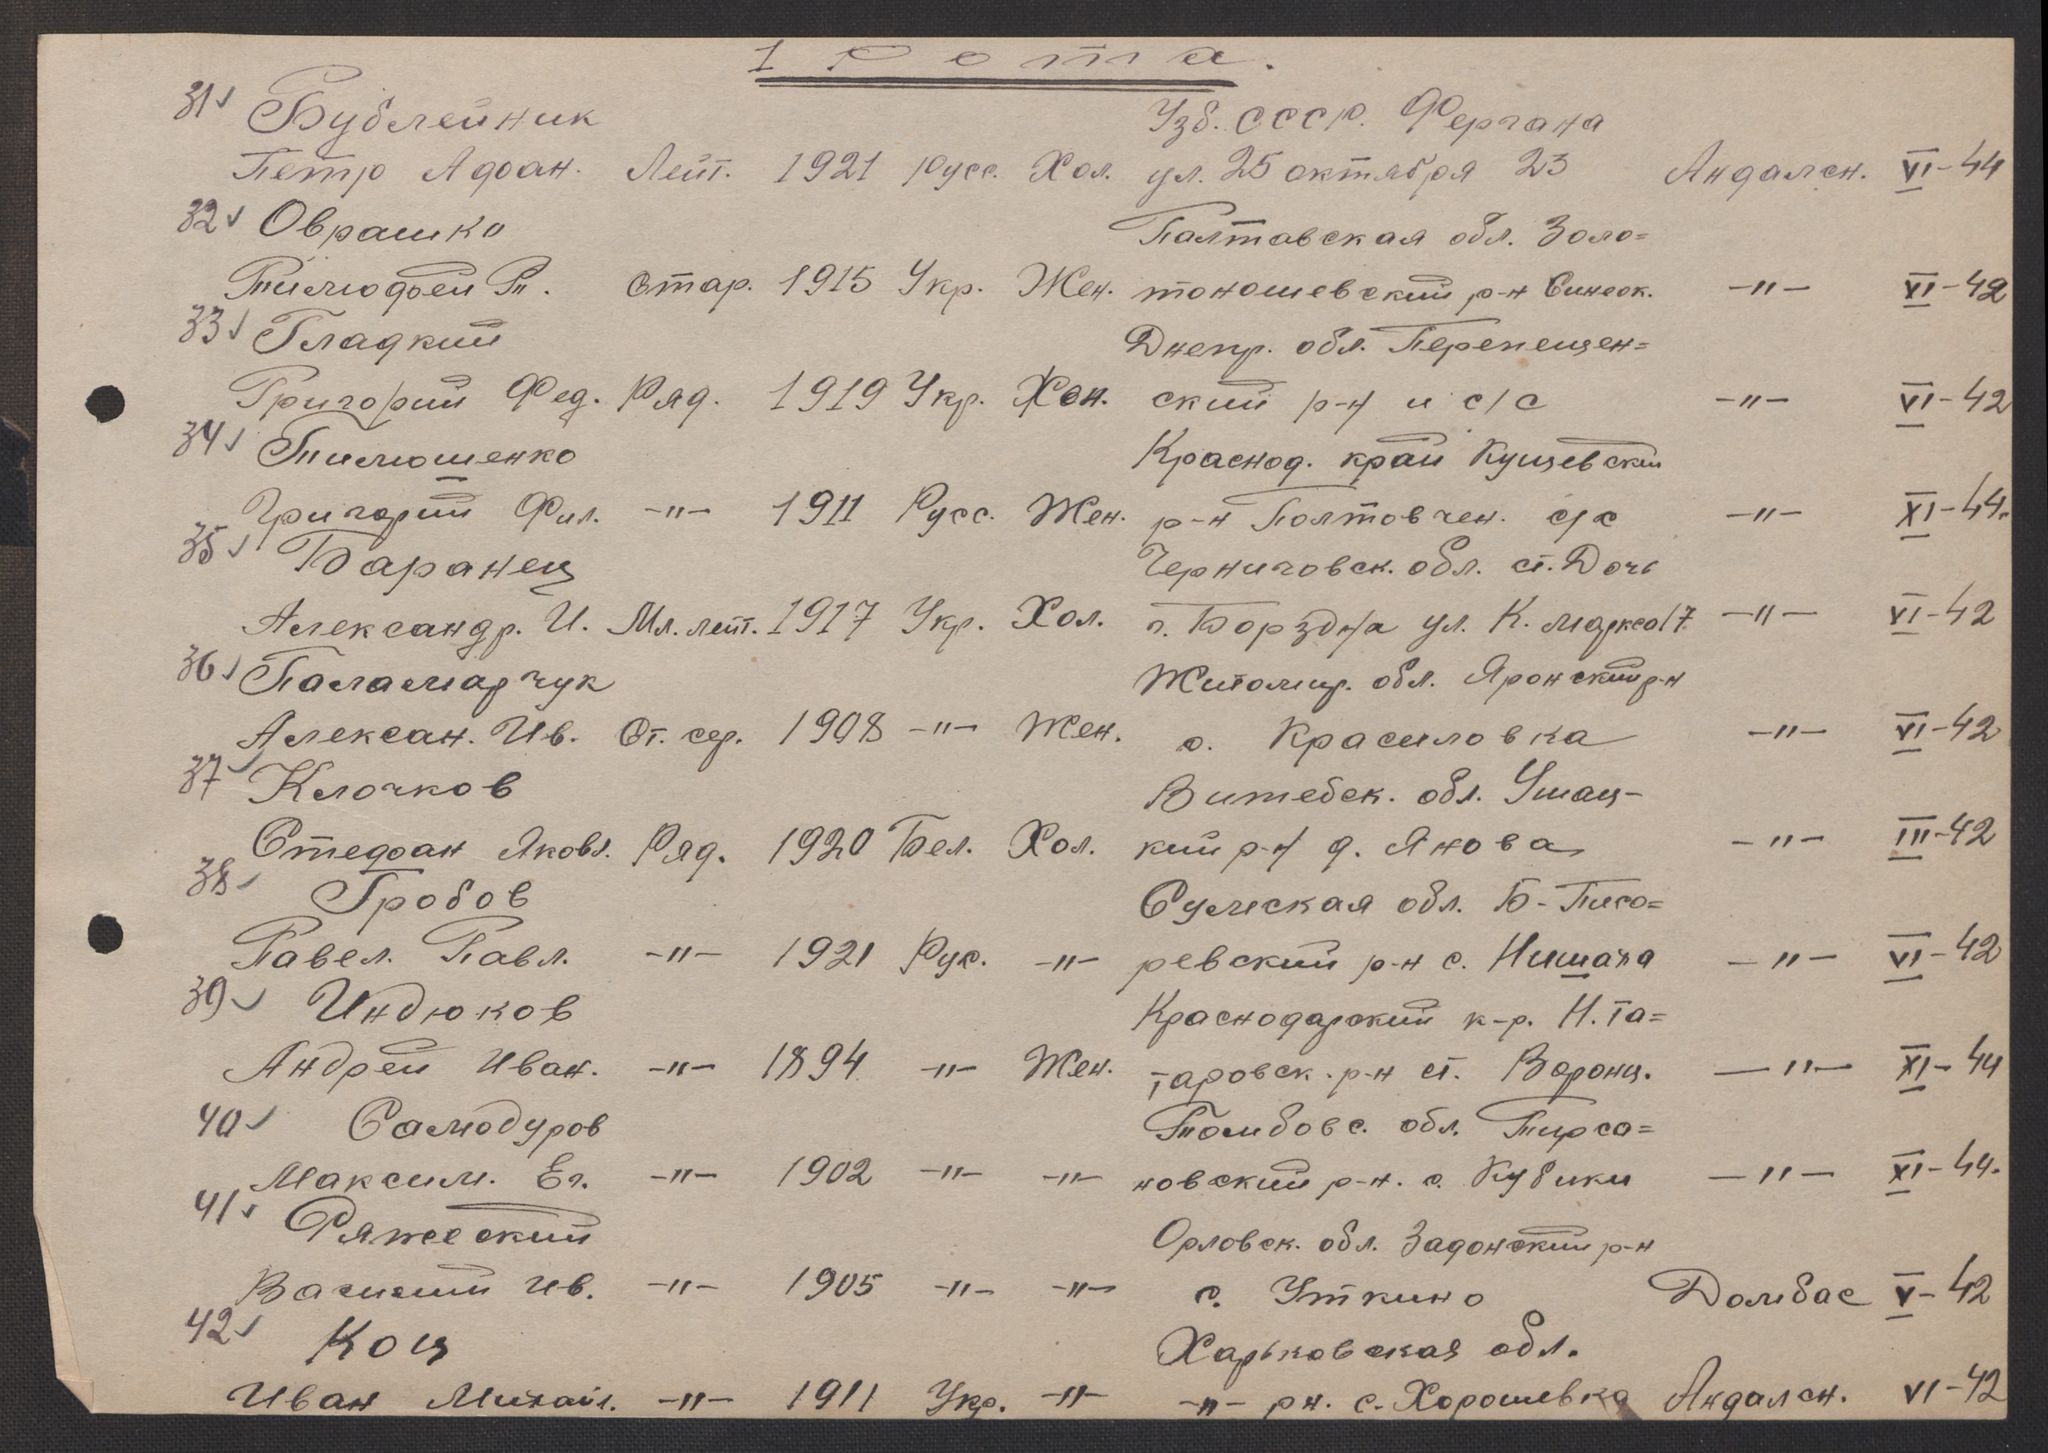 1 Рота.
31 Бублейник Узб. СССР. Фергана
Петр Афан. Лейт. 1921 Русс. Хол. ул. 25 октября 23 Андалсн. VI-44
32 Оврашко Палтавская обл. Золо=
Тимофей П. Стар. 1915 Укр. Жен. тоношевский р-н Синеок. -"- XI-42
33 Гладкий Днепр. обл. Перепещен=
Григорий Фед. Ряд. 1919 Укр. Жен. ский р-н и с/с -"- VI-42
34 Тимошенко Краснод. край Кущевский
Григорий Фил. -"- 1911 Русс. Жен. р-н Полтовчен. с/с -"- XI-44.
35 Баранец Черниговск. обл. ст. Дочь
Александр. И. Мл. лейт. 1917 Укр. Хол. г. Борздна ул. К. маркса 17 -"- VI-42
36 Паламарчук Житомир. обл. Яронский р-н
Алексан. Ив. Ст. сер. 1908 -"- Жен. с. Красиловка -"- VI-42
37 Клочков Витебск. обл. Ушац-
Стефан Яковл. Ряд. 1920 Бел. Хол. кий р-н д. Янова -"- III-42
38 Гробов Сумская обл. Б-Писо=
Павел. Павл. -"- 1921 Рус. -"- ревский р-н с. -"- VI-42
39 Индюков Краснодарский к-р. Н. та=
Андрей Иван. -"- 1894 -"- Жен. таровск. р-н ст. Воронц. -"- XI-44
40 Самодуров Томбовс. обл. Кирса=
Максим. Ег. -"- 1902 -"- -"- новский р-н. с. Кубики -"- XI-44.
41 Ряжеский Орловск. обл. Задонский р-н
Василий Ив. -"- 1905 -"- -"- с. Уткино Домбас V-42
42 Коц Харьковская обл.
Иван Михайл. -"- 1911 Укр. -"- -"- рн. с. Хорошевка Андалсн. VI-42